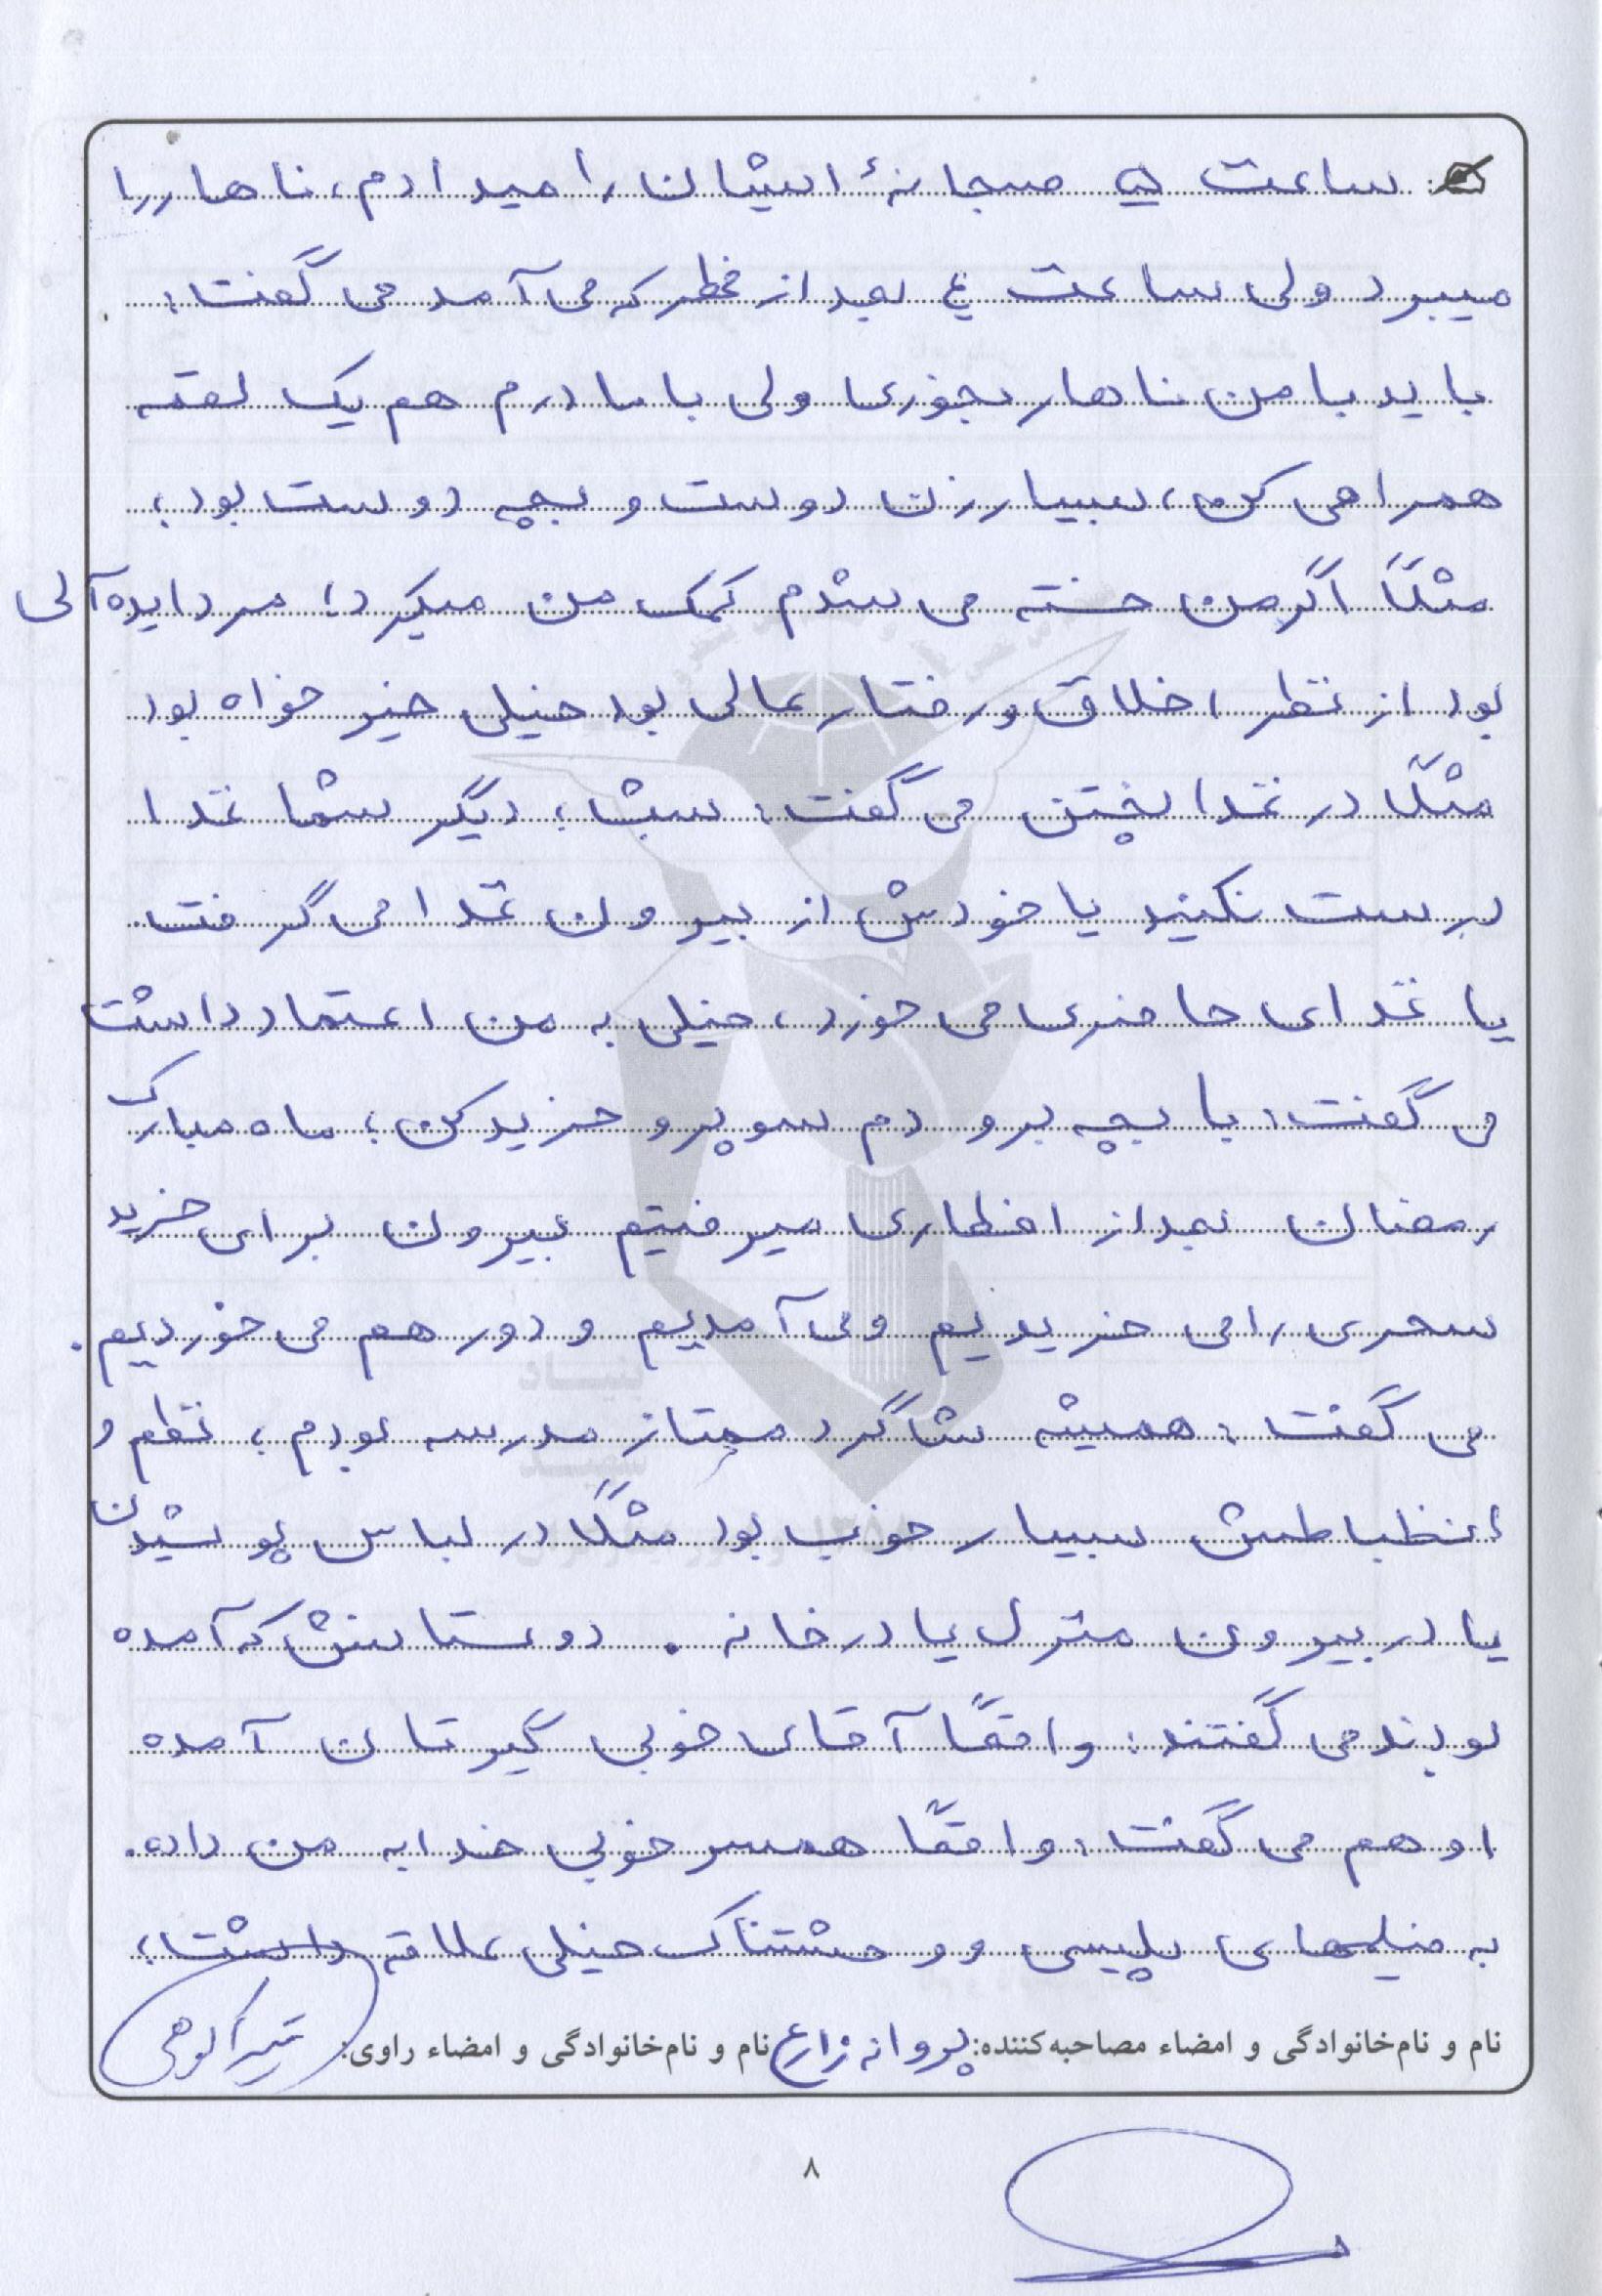 ساعت ۵ صبحانهٔ ایشان را میدادم، ناهار را
میبرد ولی ساعت ۴ بعد از ظهر که می‌آمد می‌گفت:
باید با من ناهار بخوری ولی با مادرم هم یک لقمه
همراهی کن، بسیار زن دوست و بچه دوست بود؛
مثلاً اگر من خسته می‌شدم کمک من میکرد؛ مرد ایده‌آلی
بود از نظر اخلاق و رفتار عالی بود خیلی خیر خواه بود
مثلاً در غذا پختن می‌گفت: شب‌ها؛ دیگر شما غذا
درست نکنید یا خودش از بیرون غذا می‌گرفت
یا غذای حاضری می‌خورد، خیلی به من اعتماد داشت
می‌گفت: با بچه برو دم سوپر و خرید کن؛ ماه مبارک
رمضان بعد از افطاری میرفتیم بیرون برای خرید
سحری را می‌خریدیم و می‌آمدیم و دور هم می‌خوردیم.
می‌گفت: همیشه شاگرد ممتاز مدرسه بودم؛ نظم و
انظباطش بسیار خوب بود مثلاً در لباس پوشیدن
یا در بیرون منزل یا در خانه. دوستانش که آمده
بودند می‌گفتند: واقعاً آقای خوبی گیرتان آمده
او هم می‌گفت: واقعاً همسر خوبی خدا به من داده.
به فیلمهای پلیسی و وحشتناک خیلی علاقه داشت؛
نام و نام‌خانوادگی و امضاء مصاحبه‌کننده: پروانه زارع نام و نام‌خانوادگی و امضاء راوی:
۸